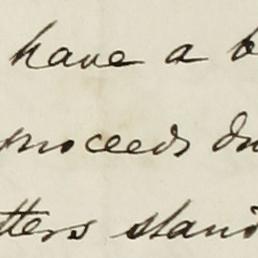 have a b
proceeds du
tters stand